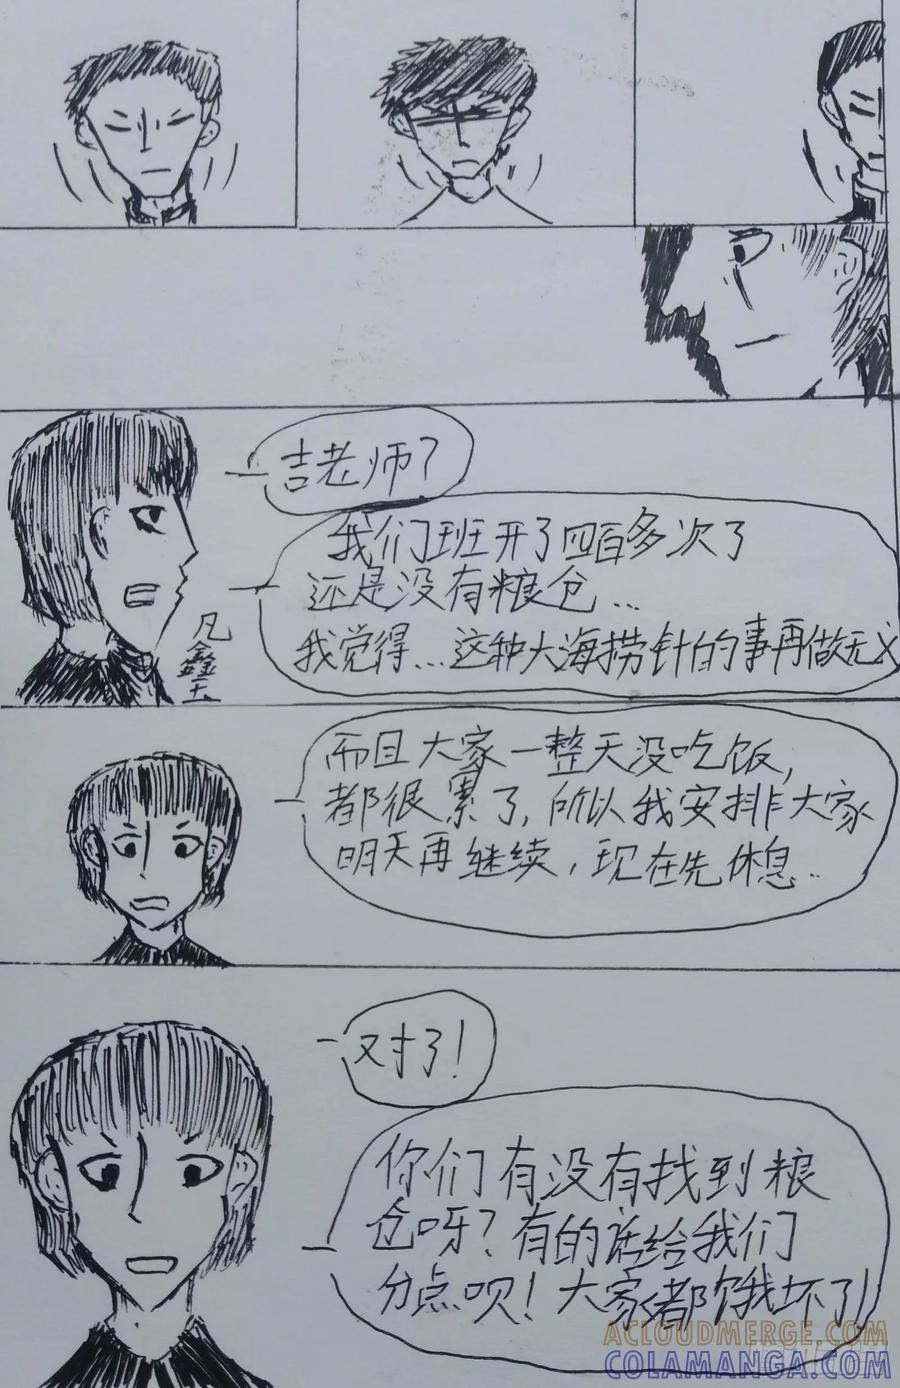 吉老师？
我们班开了四百多次了
还是没有粮仓...
我觉得...这种大海捞针的事再做无义
凡
鑫
玉
而且大家一整天没吃饭，
都很累了，所以我安排大家
明天再继续，现在先休息..
对了！
你们有没有找到粮
仓呀？有的话给我们
分点呗！大家都饿坏了！
ACLOUDMERGE.COM
COLAMANGA.COM